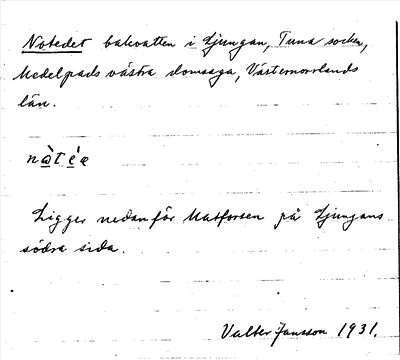 Notedet bakvatten i Ljungan, Tuna socken,
Medelpads västra domsaga, Västernorrlands
län.
nὰt é e
Ligger nedanför Matforsen på Ljungans
södra sida.
Valter Jansson 1931.